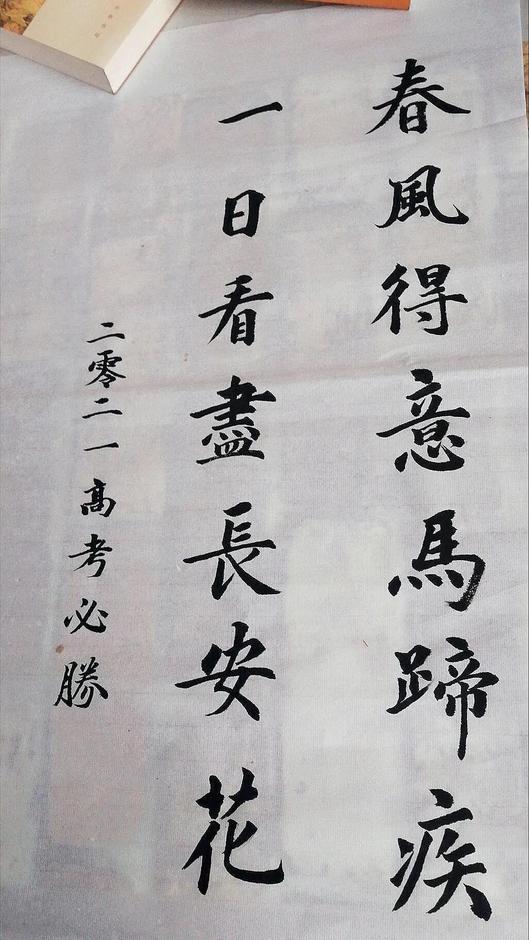 春風得意馬蹄疾
一日看盡長安花
二零二一高考必勝